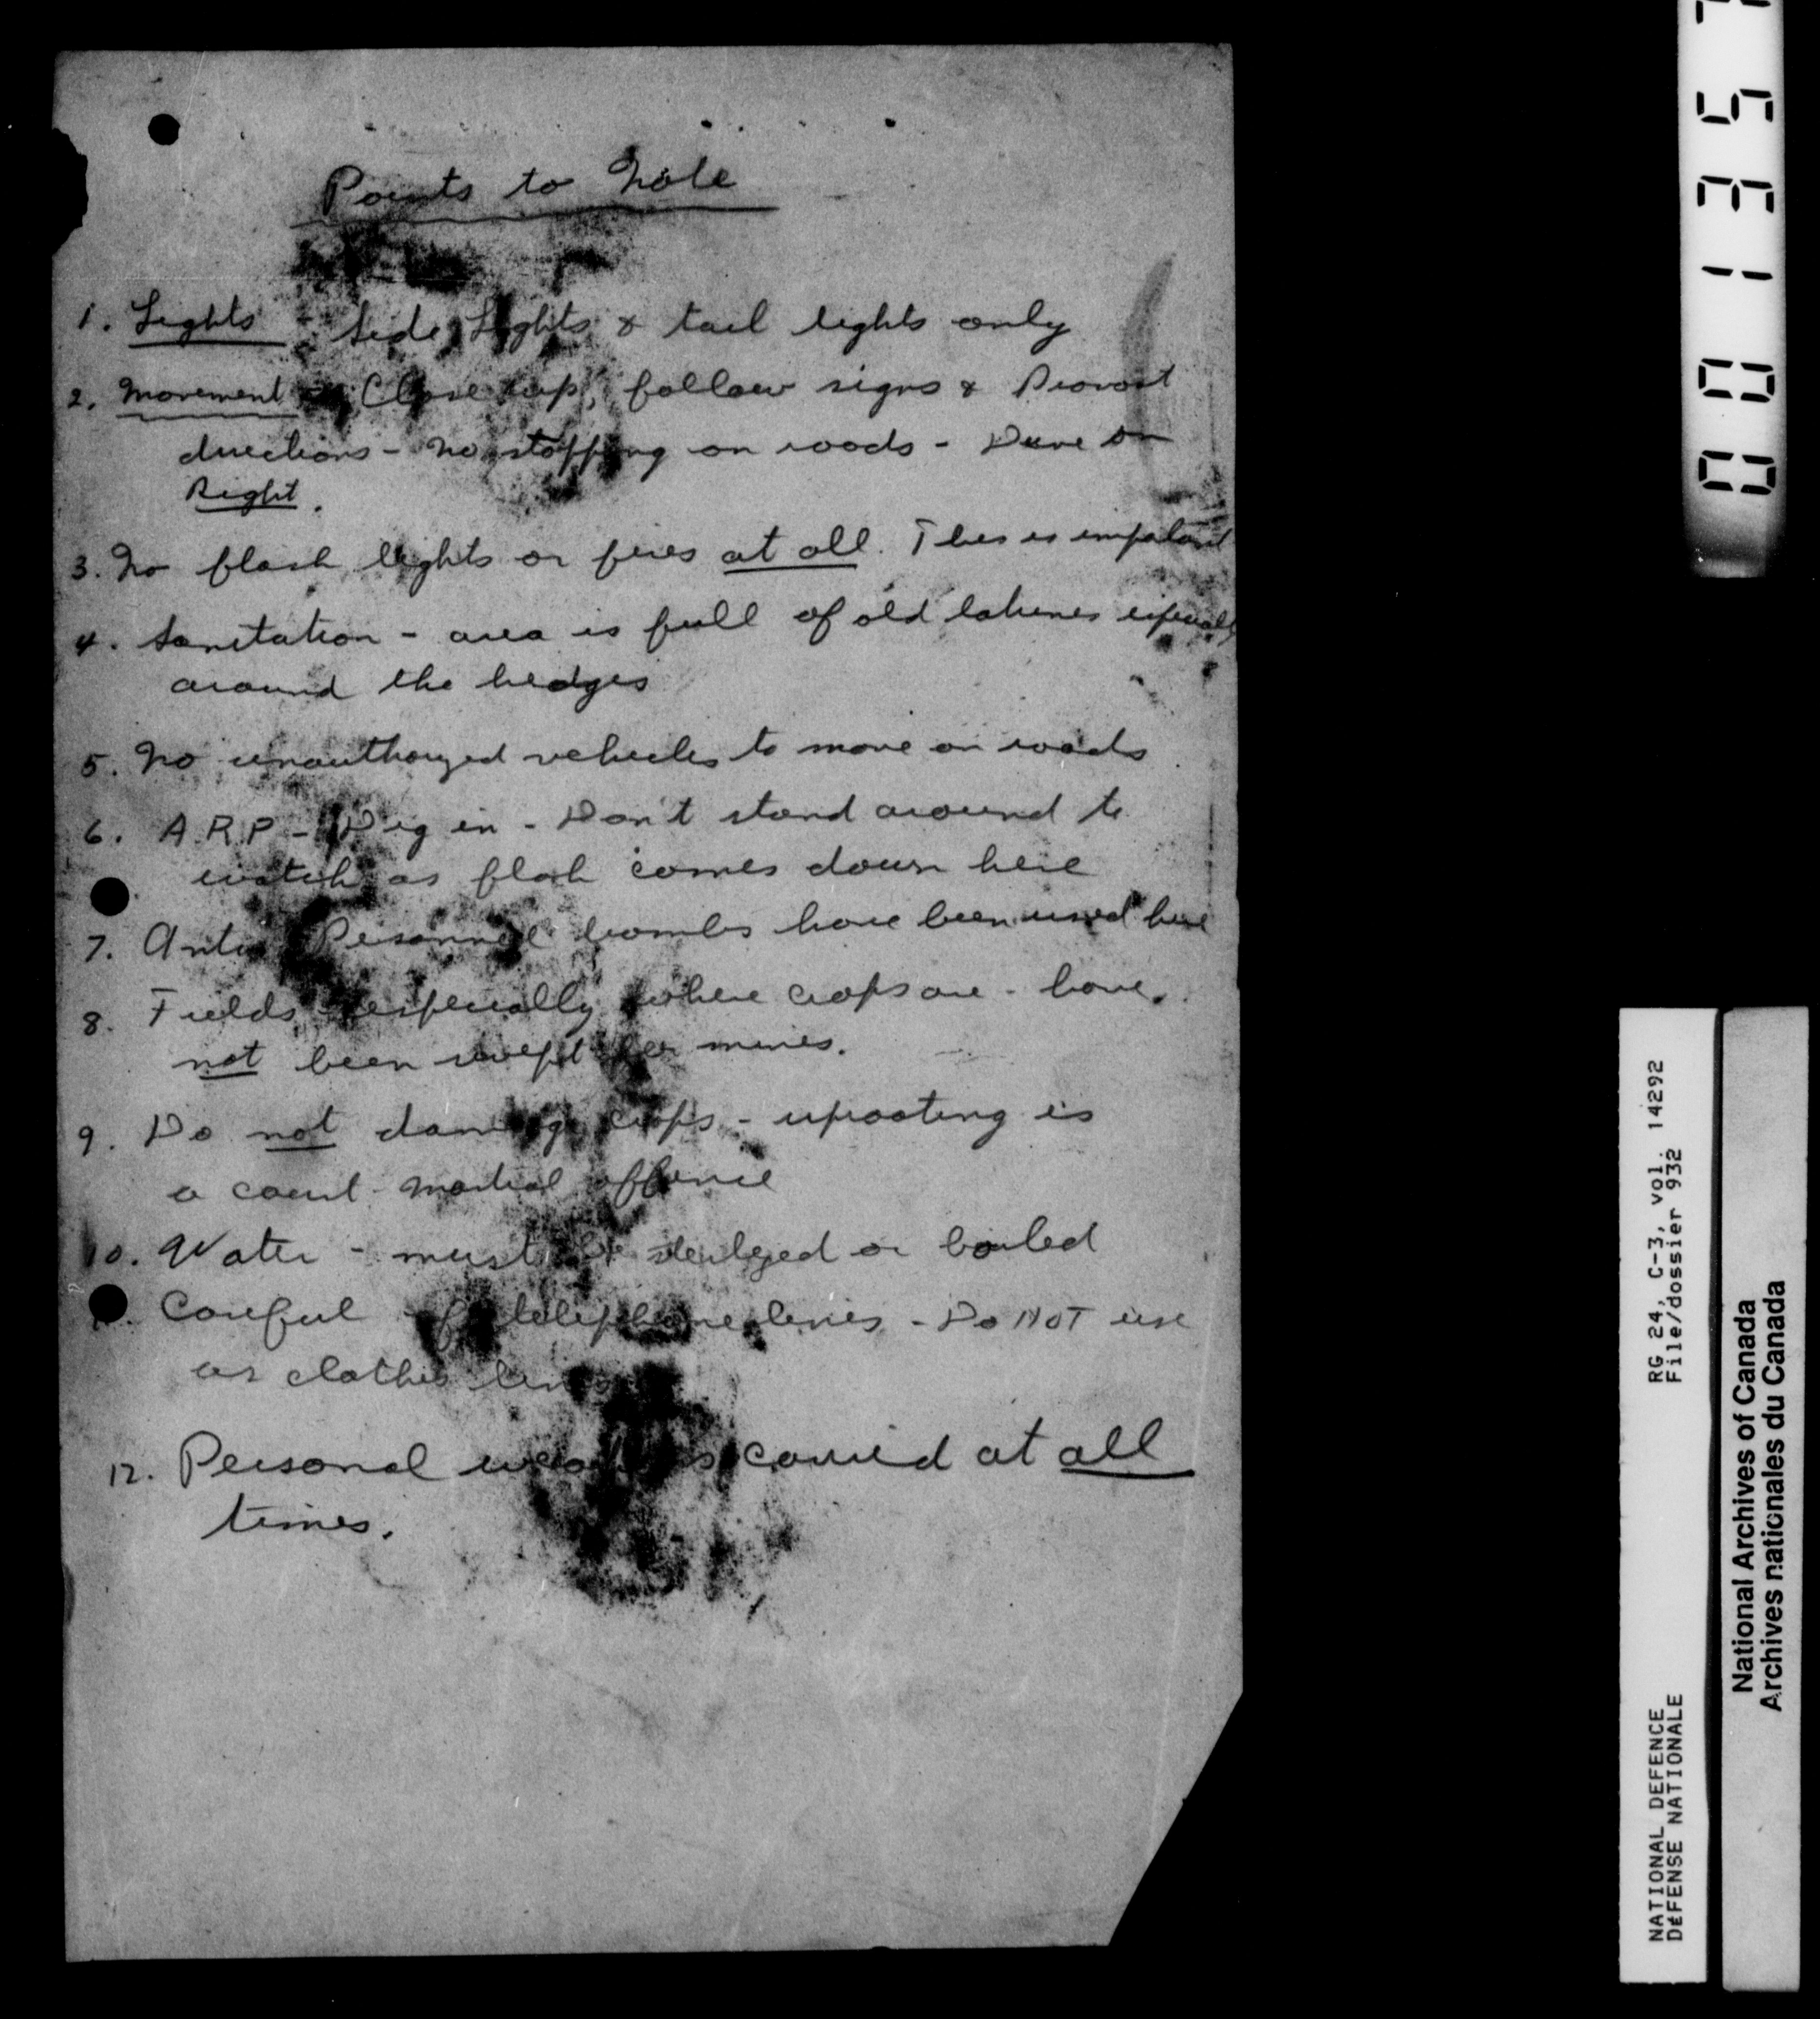 Points to Note
1. Lights - Side Lights & tail lights only
2. Movement - Close up, follow signs & Provost
directions - No stopping on roads - Drive on
Right.
3. No flash lights or fires at all. This is important
4. Sanitation - area is full of old latrines especially
around the hedges
5. No unauthorized vehicles to move on roads
6. A.R.P. - Dig in - Don't stand around to
watch as flak comes down here
7. Anti Personnel bombs have been used here
8. Fields especially where crops are - have
not been swept for mines.
9. Do not damage crops - uprooting is
a court-martial offence
10. Water - must be sterilized or boiled
Careful of telephone lines - Do NOT use
as clothes lines
12. Personal weapons carried at all
times.
00135
NATIONAL DEFENCE RG 24, C-3, vol. 14292
DÉFENSE NATIONALE File/dossier 932
National Archives of Canada
Archives nationales du Canada